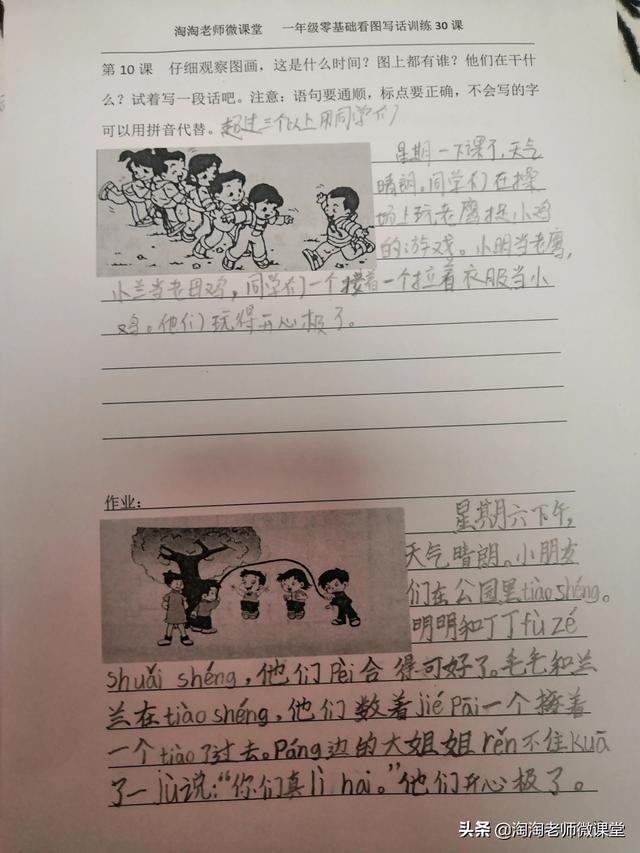 淘淘老师微课堂 一年级零基础看图写话训练30课
第10课 仔细观察图画，这是什么时间？图上都有谁？他们在干什
么？试着写一段话吧。注意：语句要通顺，标点要正确，不会写的字
可以用拼音代替。超过三个以上用同学们
星期一下课了，天气
晴朗，同学们在操
场上玩老鹰捉小鸡
的游戏。小明当老鹰，
小兰当老母鸡，同学们一个接着一个拉着衣服当小
鸡。他们玩得开心极了。
作业：
星期六下午，
天气晴朗。小朋友
们在公园里tiào shéng。
明明和丁丁fù zé
shuǎi shéng，他们Pèi合得可好了。毛毛和兰
兰在tiào shéng，他们数着jié Pāi一个接着
一个tiào了过去。Páng边的大姐姐rěn不住kuā
了一jù说：“你们真lì hai。”他们开心极了。
头条 @淘淘老师微课堂